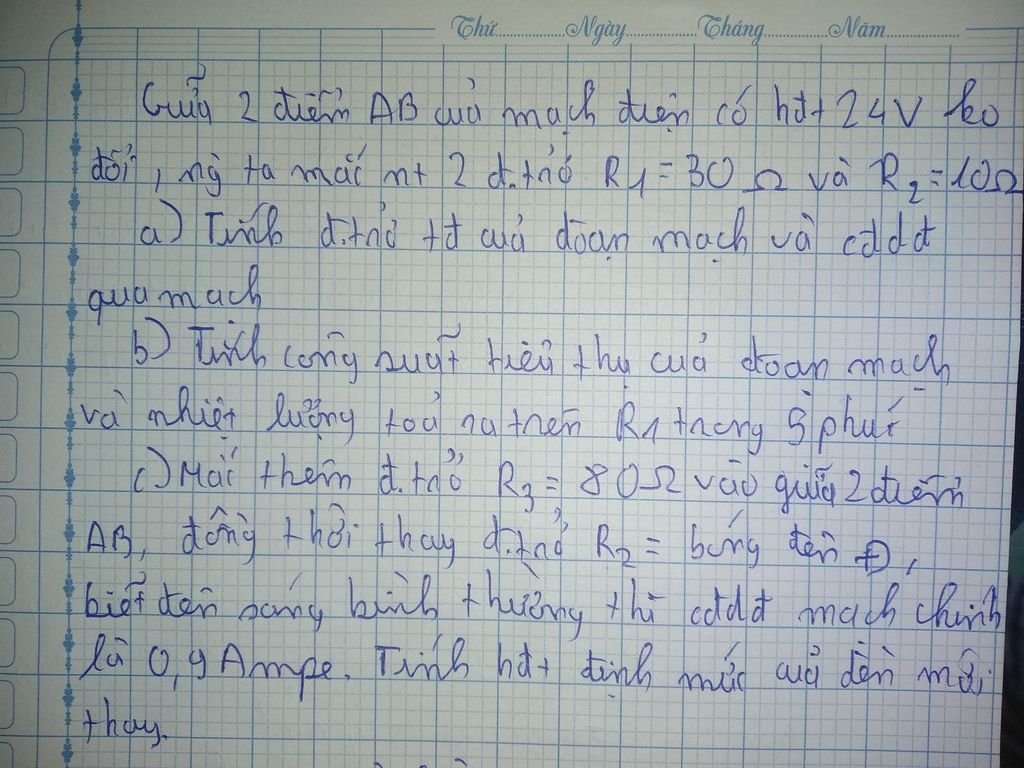 Thứ Ngày Tháng Năm
Giữa 2 điểm AB của mạch điện có hđt 24V ko
đổi, ng ta mắc nt 2 đ.trở R1 = 30 Ω và R2 = 10Ω
a) Tính đ.trở tđ của đoạn mạch và cđdđ
qua mạch
b) Tính công suất tiêu thụ của đoạn mạch
và nhiệt lượng toả ra trên R1 trong 5 phút
c) Mắc thêm đ.trở R3 = 80Ω vào giữa 2 điểm
AB, đồng thời thay đ.trở R2 = bóng đèn Đ,
biết đèn sáng bình thường thì cđdđ mạch chính
là 0,9 Ampe. Tính hđt định mức của đèn mới
thay.